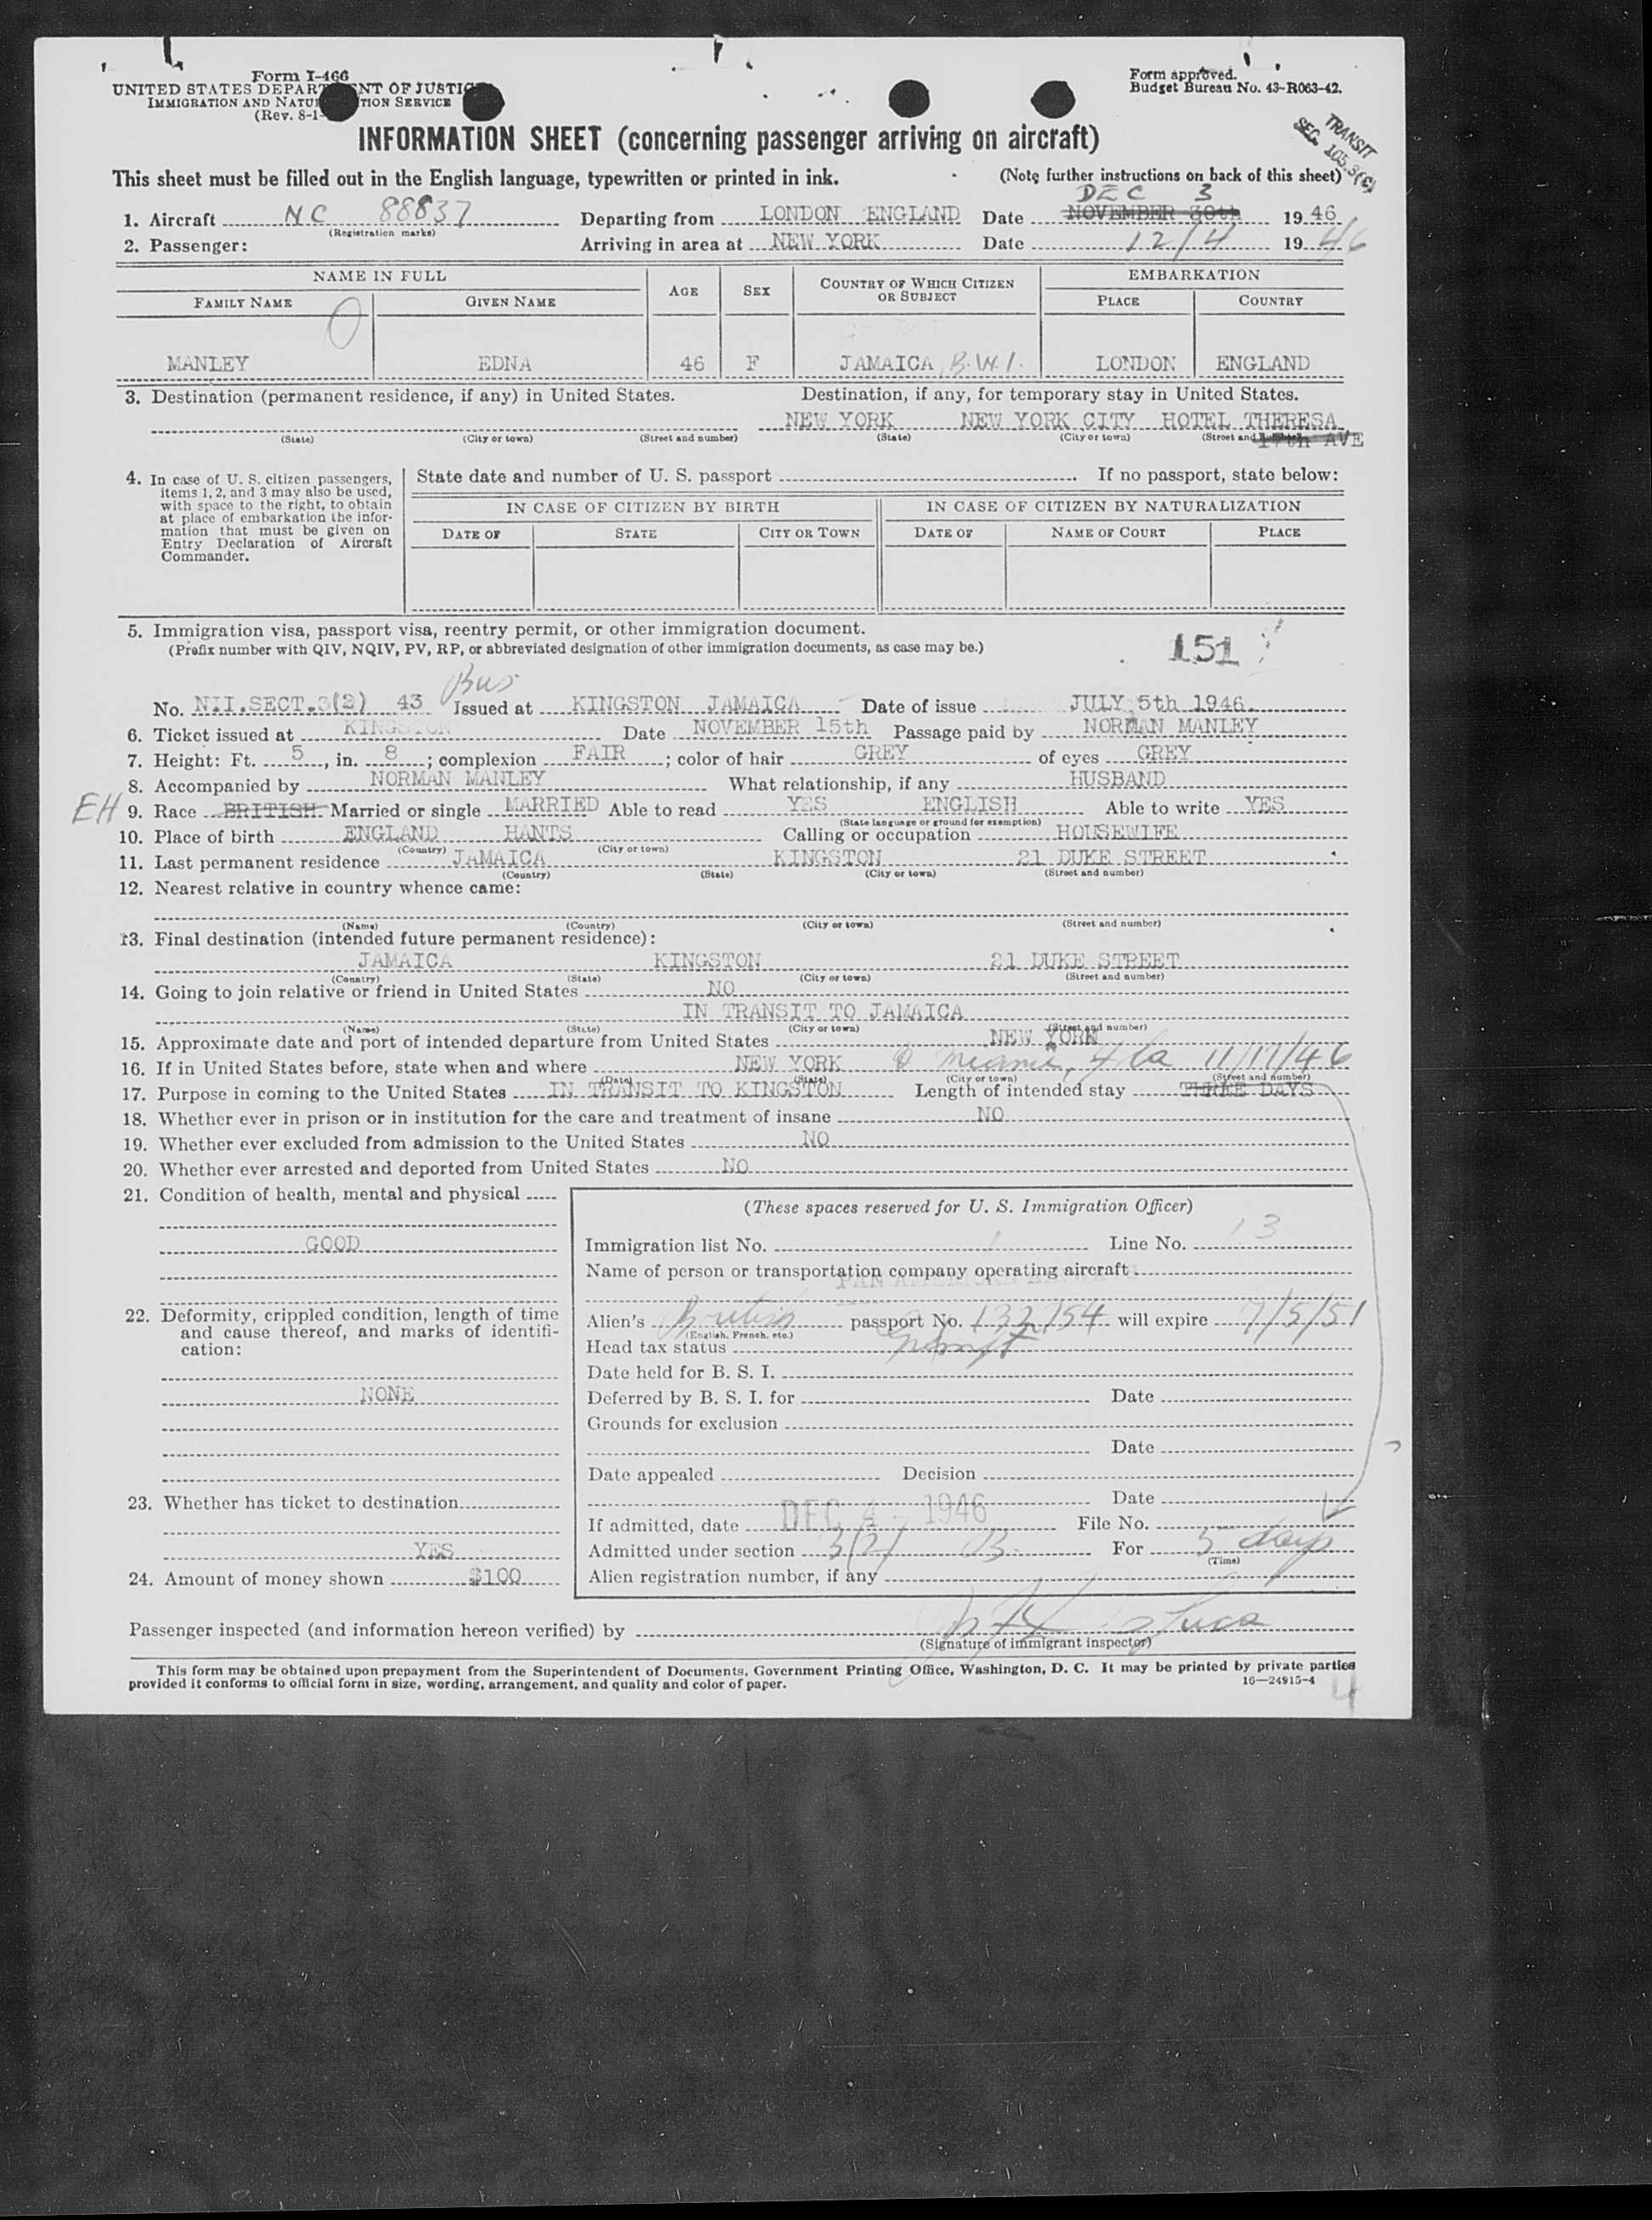 Form I-466
UNITED STATES DEPARTMENT OF JUSTICE
IMMIGRATION AND NATURALIZATION SERVICE
(Rev. 8-1-
Form approved.
Budget Bureau No. 43-R063-42.
TRANSIT
SEC. 105.3(C)
INFORMATION SHEET (concerning passenger arriving on aircraft)
This sheet must be filled out in the English language, typewritten or printed in ink. (Note further instructions on back of this sheet)
DEC 3
1. Aircraft NC 88837 Departing from LONDON ENGLAND Date NOVEMBER 30th 19 46
(Registration marks)
2. Passenger: Arriving in area at NEW YORK Date 12/4 19 46
NAME IN FULL AGE SEX COUNTRY OF WHICH CITIZEN OR SUBJECT EMBARKATION
FAMILY NAME GIVEN NAME PLACE COUNTRY
MANLEY EDNA 46 F JAMAICA, B.W.I. LONDON ENGLAND
3. Destination (permanent residence, if any) in United States. Destination, if any, for temporary stay in United States.
NEW YORK NEW YORK CITY HOTEL THERESA
(State) (City or town) (Street and number) (State) (City or town) (Street and number)
17th AVE
4. In case of U. S. citizen passengers, items 1, 2, and 3 may also be used, with space to the right, to obtain at place of embarkation the information that must be given on Entry Declaration of Aircraft Commander.
State date and number of U. S. passport If no passport, state below:
IN CASE OF CITIZEN BY BIRTH IN CASE OF CITIZEN BY NATURALIZATION
DATE OF STATE CITY OR TOWN DATE OF NAME OF COURT PLACE
5. Immigration visa, passport visa, reentry permit, or other immigration document.
(Prefix number with QIV, NQIV, PV, RP, or abbreviated designation of other immigration documents, as case may be.)
151
Bus
No. NII.SECT.3(2) 43 Issued at KINGSTON JAMAICA Date of issue JULY 5th 1946.
6. Ticket issued at KINGSTON Date NOVEMBER 15th Passage paid by NORMAN MANLEY
7. Height: Ft. 5, in. 8; complexion FAIR; color of hair GREY of eyes GREY
8. Accompanied by NORMAN MANLEY What relationship, if any HUSBAND
EH 9. Race BRITISH Married or single MARRIED Able to read YES ENGLISH Able to write YES
(State language or ground for exemption)
10. Place of birth ENGLAND HANTS Calling or occupation HOUSEWIFE
(Country) (City or town)
11. Last permanent residence JAMAICA KINGSTON 21 DUKE STREET
(Country) (State) (City or town) (Street and number)
12. Nearest relative in country whence came:
(Name) (Country) (City or town) (Street and number)
13. Final destination (intended future permanent residence):
JAMAICA KINGSTON 21 DUKE STREET
(Country) (State) (City or town) (Street and number)
14. Going to join relative or friend in United States NO
IN TRANSIT TO JAMAICA
(Name) (State) (City or town) (Street and number)
15. Approximate date and port of intended departure from United States NEW YORK
16. If in United States before, state when and where NEW YORK Miami, Fla 11/17/46
(Date) (State) (City or town) (Street and number)
17. Purpose in coming to the United States IN TRANSIT TO KINGSTON Length of intended stay THREE DAYS
18. Whether ever in prison or in institution for the care and treatment of insane NO
19. Whether ever excluded from admission to the United States NO
20. Whether ever arrested and deported from United States NO
21. Condition of health, mental and physical
GOOD
22. Deformity, crippled condition, length of time and cause thereof, and marks of identification:
NONE
23. Whether has ticket to destination
YES
24. Amount of money shown $100
(These spaces reserved for U. S. Immigration Officer)
Immigration list No. 1 Line No. 13
Name of person or transportation company operating aircraft
Alien's British passport No. 132754 will expire 7/5/51
(English, French, etc.)
Head tax status
Date held for B. S. I.
Deferred by B. S. I. for Date
Grounds for exclusion
Date
Date appealed Decision
Date
If admitted, date DEC 4 - 1946 File No.
Admitted under section 3(2) B For 5 days
(Time)
Alien registration number, if any
Passenger inspected (and information hereon verified) by
(Signature of immigrant inspector)
This form may be obtained upon prepayment from the Superintendent of Documents, Government Printing Office, Washington, D. C. It may be printed by private parties
provided it conforms to official form in size, wording, arrangement, and quality and color of paper. 16—24915-4
4